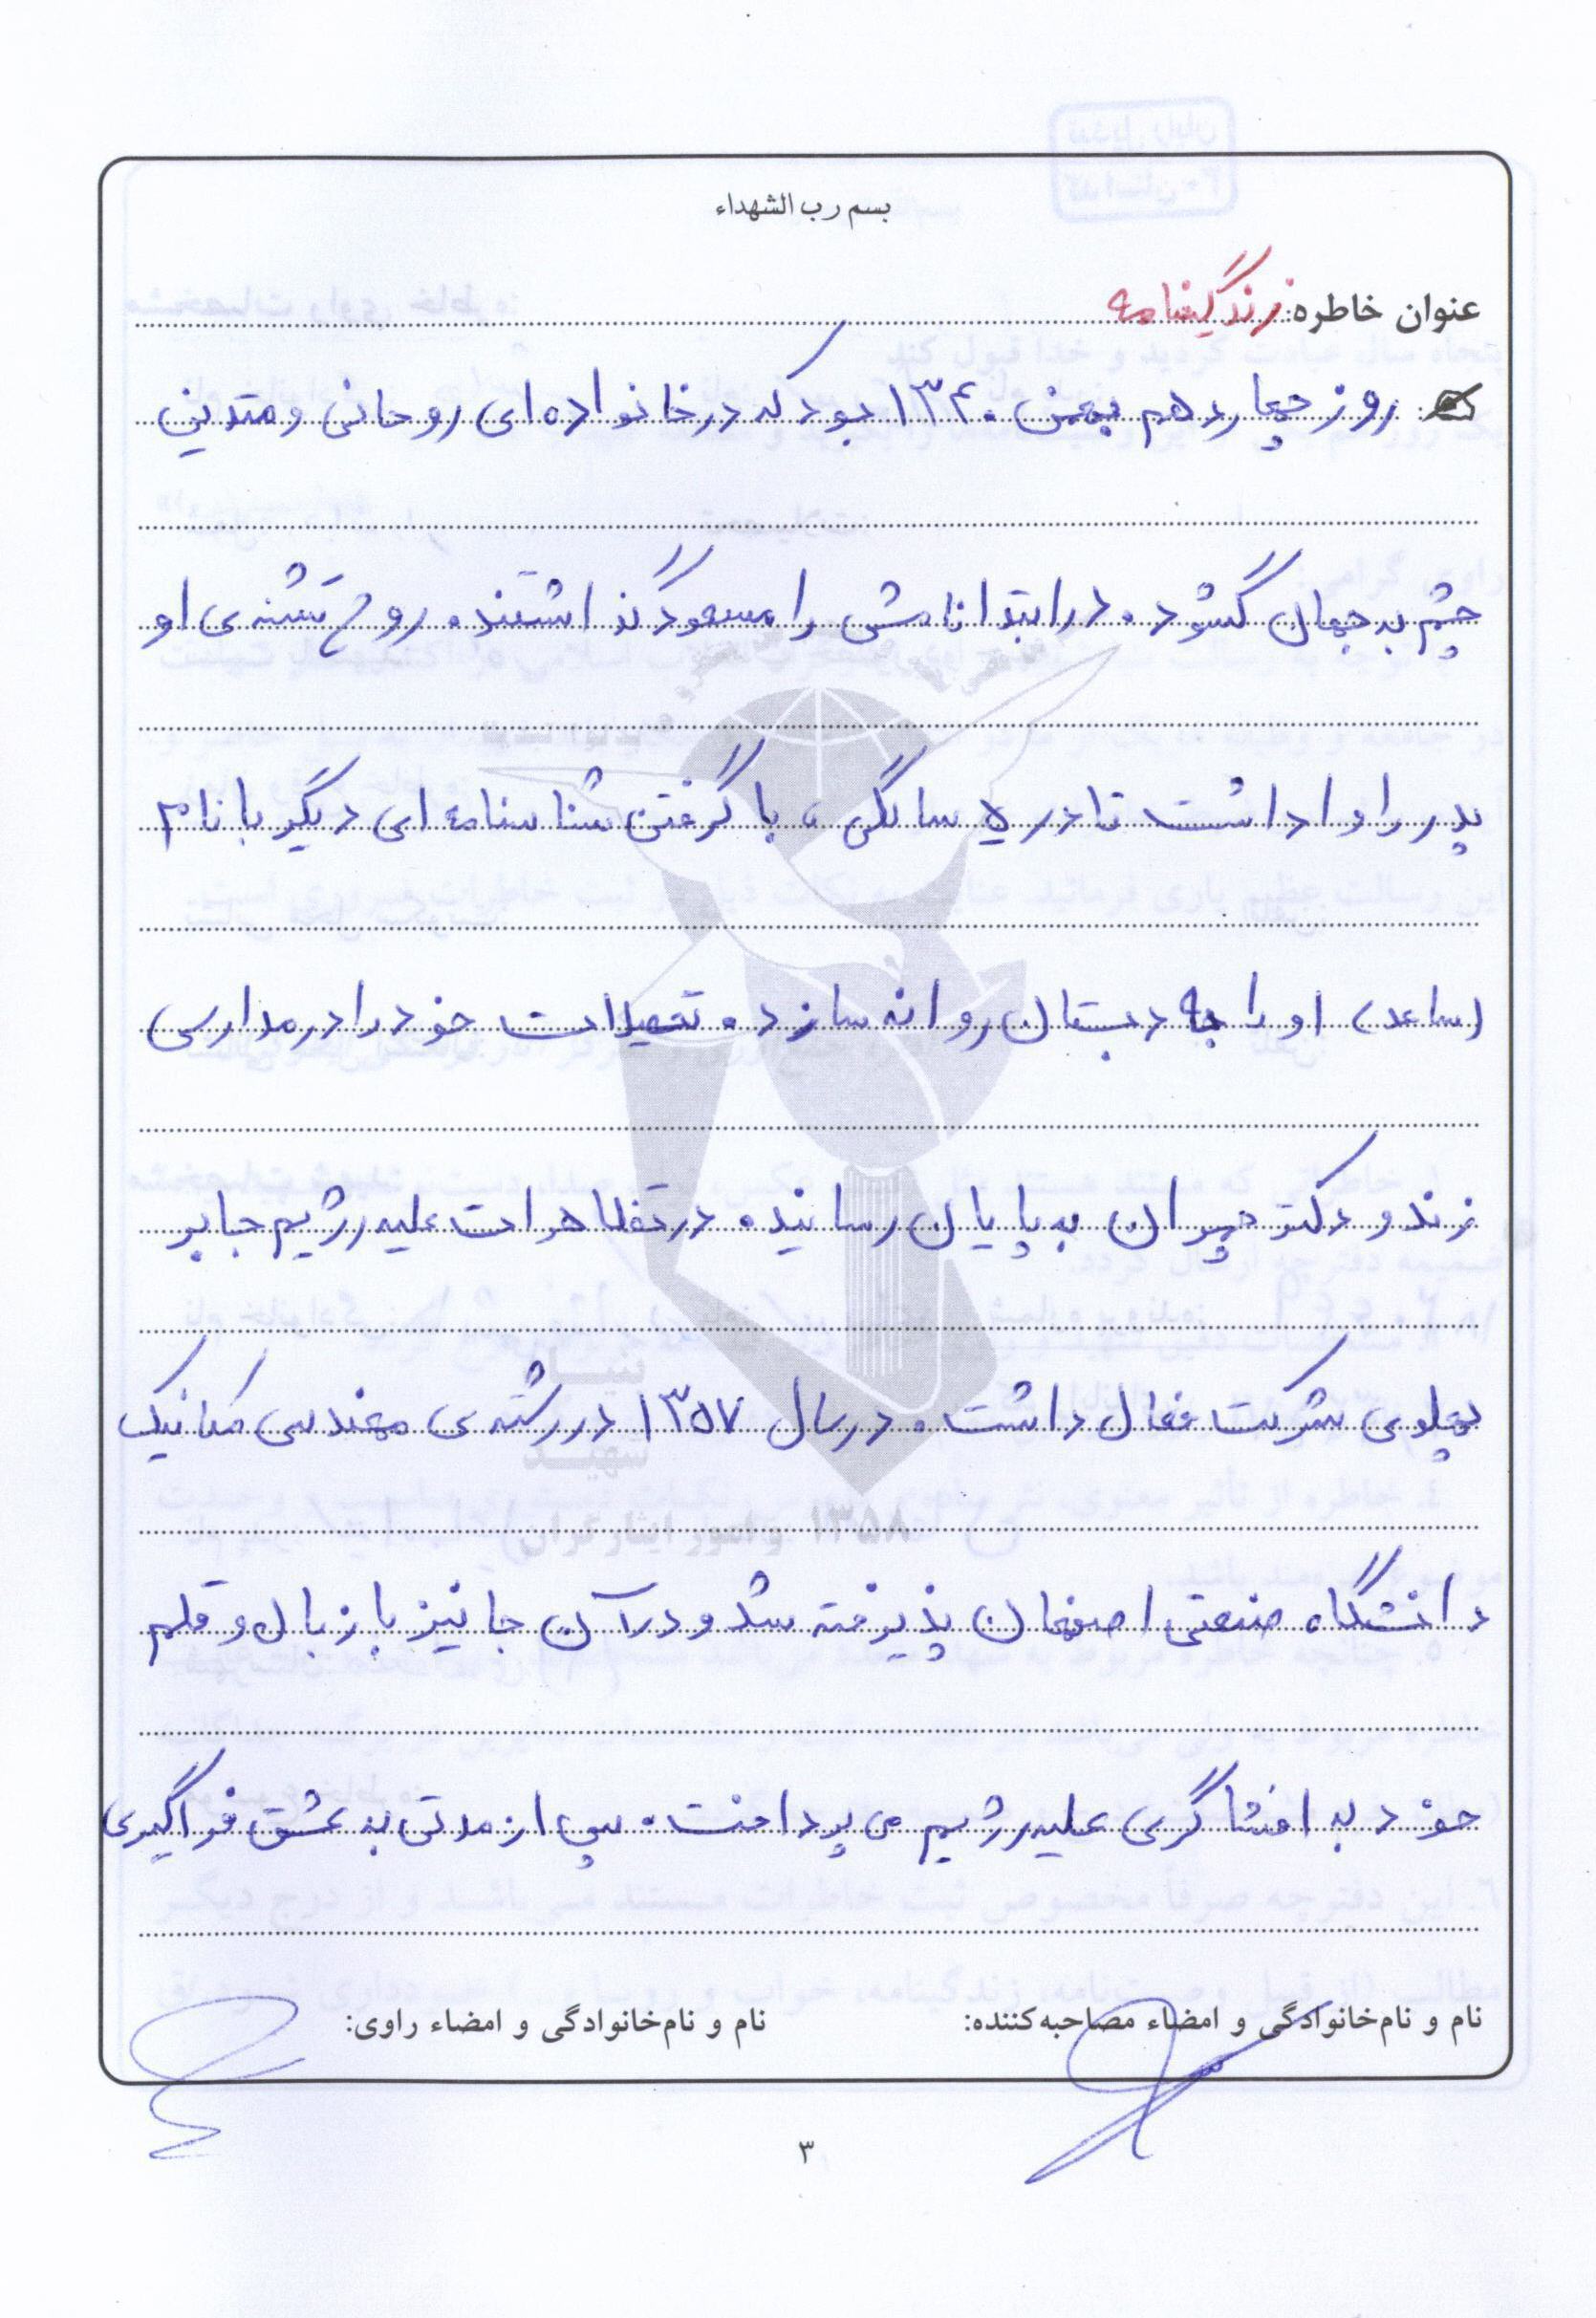 بسم رب الشهداء
عنوان خاطره: زندگینامه
روز چهاردهم بهمن ۱۳۴۰ بود که در خانواده‌ای روحانی و متدین
چشم به جهان گشود. در ابتدا نامش را مسعود گذاشتند. روح تشنه‌ی او
پدر را واداشت تا در ۵ سالگی، با گرفتن شناسنامه‌ای دیگر با نام
(ساعد) او را به دبستان روانه سازد. تحصیلات خود را در مدارس
زند و دکتر چمران به پایان رسانید. در تظاهرات علیه رژیم جابر
پهلوی شرکت فعال داشت. در سال ۱۳۵۷ در رشته‌ی مهندسی مکانیک
دانشگاه صنعتی اصفهان پذیرفته شد و در آن جا نیز با زبان و قلم
خود به افشاگری علیه رژیم می پرداخت. پس از مدتی به عشق فراگیری
نام و نام‌خانوادگی و امضاء مصاحبه‌کننده:
نام و نام‌خانوادگی و امضاء راوی:
۳